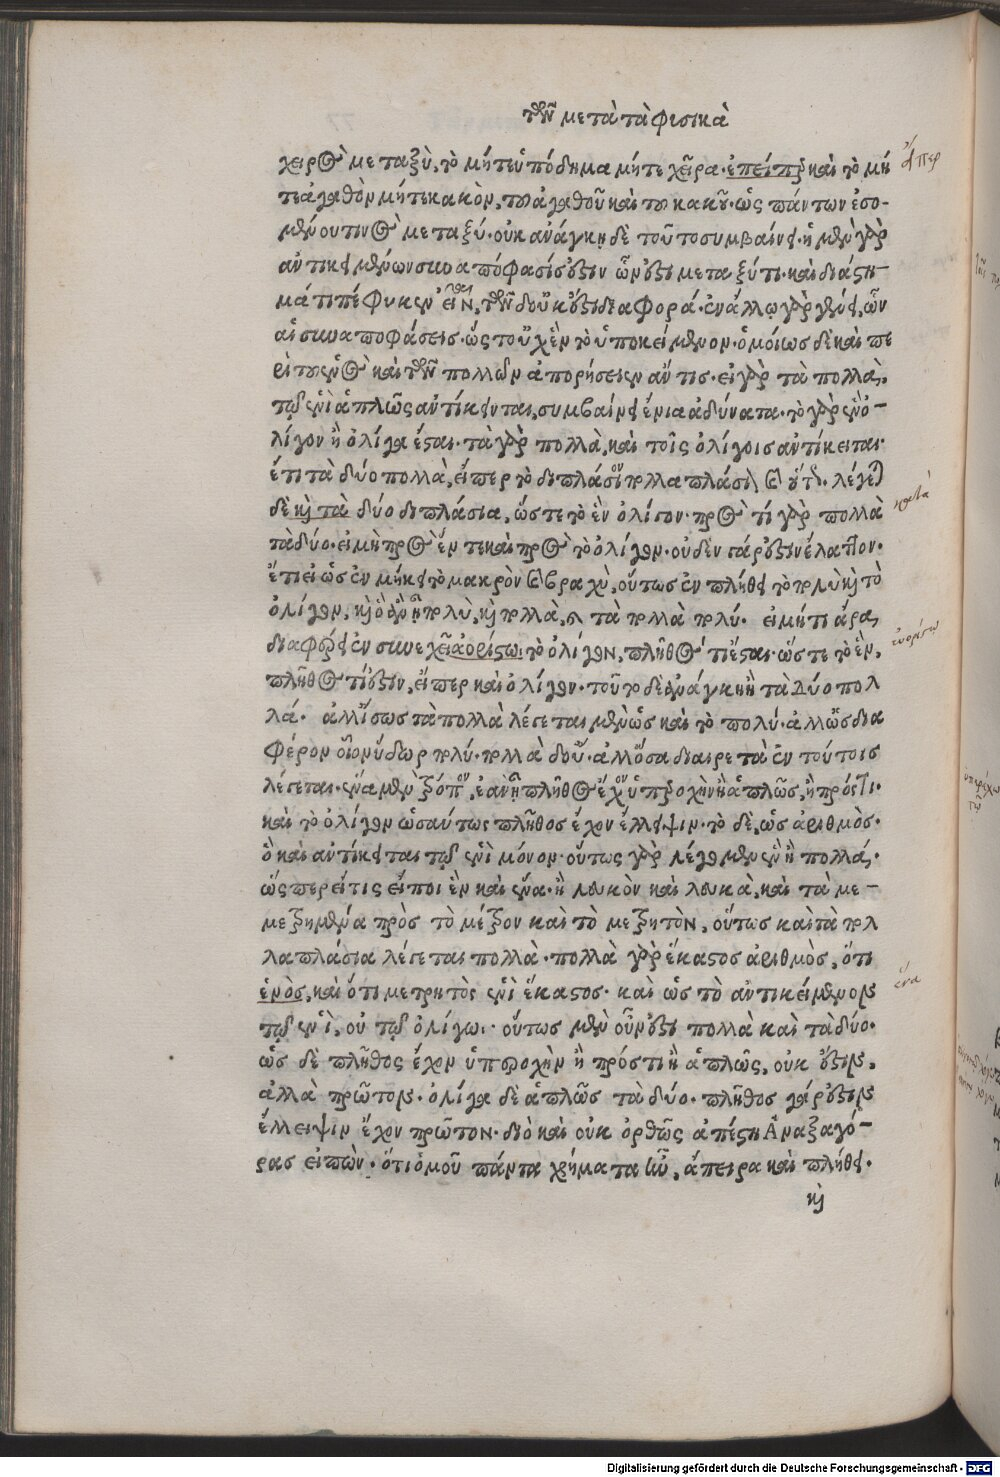 τῶν μετὰ τὰ φυσικὰ
χειρὸς μεταξὺ, τὸ μήτε ὑπόδημα μήτε χεῖρα. ἐπείπερ καὶ τὸ μή
τε ἀγαθὸν μήτε κακὸν, τοῦ ἀγαθοῦ καὶ τοῦ κακοῦ. ὡς πάντων ἐσο-
μένου τινὸς μεταξύ. οὐκ ἀνάγκη δὲ τοῦτο συμβαίνει. ἡ μὲν γὰρ
ἀντικειμένων συναπόφασίς ἐστιν ὧν ἐστι μεταξύ τι. καὶ διάστη-
μά τι πέφυκεν εἶναι, τῶν δ' οὐκ ἔστι διαφορά. ἐν ἄλλῳ γὰρ γένει, ὧν
αἱ συναποφάσεις. ὥστ' οὐχ ἓν τὸ ὑποκείμενον. ὁμοίως δὲ καὶ πε
ρὶ τοῦ ἑνὸς καὶ τῶν πολλῶν ἀπορήσειεν ἄν τις. εἰ γὰρ τὰ πολλὰ,
τῷ ἑνὶ ἁπλῶς ἀντίκεινται, συμβαίνει ἔνια ἀδύνατα. τὸ γὰρ ἓν ὀ-
λίγον ἢ ὀλίγα ἔσται. τὰ γὰρ πολλὰ, καὶ τοῖς ὀλίγοις ἀντίκειται.
ἔτι τὰ δύο πολλὰ, εἴπερ τὸ διπλάσιον πολλαπλάσιον λέγεται
δὲ κατὰ δύο διπλάσια, ὥστε τὸ ἓν ὀλίγον. πρὸς τί γὰρ πολλὰ
τὰ δύο. εἰ μὴ πρὸς ἕν τε καὶ πρὸς τὸ ὀλίγον. οὐδὲν γάρ ἐστιν ἔλαττον.
ἔτι εἰ ὡς ἐν μήκει τὸ μακρὸν καὶ βραχὺ, οὕτως ἐν πλήθει τὸ πολὺ καὶ τὸ
ὀλίγον, καὶ ὃ ἂν ᾖ πολὺ, καὶ πολλὰ, καὶ τὰ πολλὰ πολύ. εἰ μή τι ἄρα,
διαφέρει ἐν συνεχεῖ ἀορίστῳ. τὸ ὀλίγον, πλῆθός τι ἔσται. ὥστε τὸ ἓν,
πλῆθός τί ἐστιν, εἴπερ καὶ ὀλίγον. τοῦτο δὲ ἀνάγκη ἢ τὰ δύο πολ
λά. ἀλλ' ἴσως τὰ πολλὰ λέγεται μὲν ὡς καὶ τὸ πολύ. ἀλλ' ὡς δια
φέρον οἷον ὕδωρ πολύ. πολλὰ δ' οὔ. ἀλλ' ὅσα διαιρετὰ ἐν τούτοις
λέγεται. ἕνα μὲν ἐὰν ᾖ πλῆθος ἔχον ὑπεροχὴν ἢ ἁπλῶς, ἢ πρός τι.
καὶ τὸ ὀλίγον ὡσαύτως πλῆθος ἔχον ἔλλειψιν. τὸ δὲ, ὡς ἀριθμὸς.
ὃ καὶ ἀντίκειται τῷ ἑνὶ μόνον. οὕτως γὰρ λέγομεν ἓν ἢ πολλά.
ὥσπερ εἴ τις εἴποι ἓν καὶ ἕνα. ἢ λευκὸν καὶ λευκὰ, καὶ τὰ με-
μετρημένα πρὸς τὸ μέτρον καὶ τὸ μετρητὸν, οὕτως καὶ τὰ πολ
λαπλάσια λέγεται πολλὰ. πολλὰ γὰρ ἕκαστος ἀριθμὸς, ὅτι
ἑνὸς, καὶ ὅτι μετρητὸς ἑνὶ ἕκαστος. καὶ ὡς τὸ ἀντικείμενον
τῷ ἑνὶ, οὐ τῷ ὀλίγῳ. οὕτως μὲν οὖν ἐστι πολλὰ καὶ τὰ δύο.
ὡς δὲ πλῆθος ἔχον ὑπεροχὴν ἢ πρός τι ἢ ἁπλῶς, οὐκ ἔστιν.
ἀλλὰ πρῶτον. ὀλίγα δὲ ἁπλῶς τὰ δύο. πλῆθος γάρ ἐστιν
ἔλλειψιν ἔχον πρῶτον. διὸ καὶ οὐκ ὀρθῶς ἀπέστη Ἀναξαγό-
ρας εἰπὼν. ὅτι ὁμοῦ πάντα χρήματα ἦν, ἄπειρα καὶ πλήθει.
καὶ
ἅπερ
κατὰ
εὐορίστῳ
ἕνα
Digitalisierung gefördert durch die Deutsche Forschungsgemeinschaft - DFG